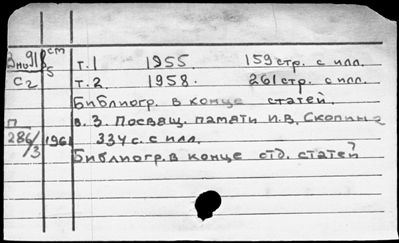 3 ни918 ст
5 т.1 1955. 159 стр. с илл.
С2 т.2. 1958. 261 стр. с илл.
Библиогр. в конце статей.
П в. 3. Посвящ. памяти И.В. Скопина
286/3 1961 334 с. с илл.
Библиогр. в конце отд. статей